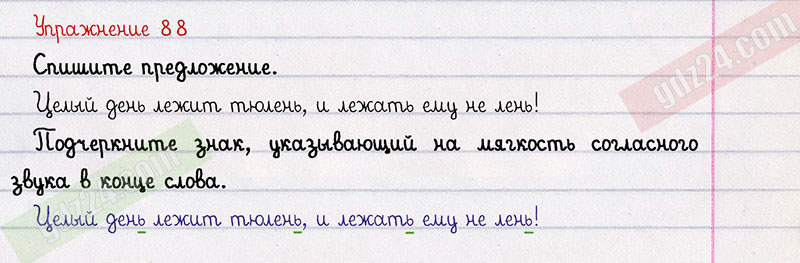 Упражнение 88
Спишите предложение.
Целый день лежит тюлень, и лежать ему не лень!
Подчеркните знак, указывающий на мягкость согласного
звука в конце слова.
Целый день лежит тюлень, и лежать ему не лень!
gdz24.com
gdz24.com